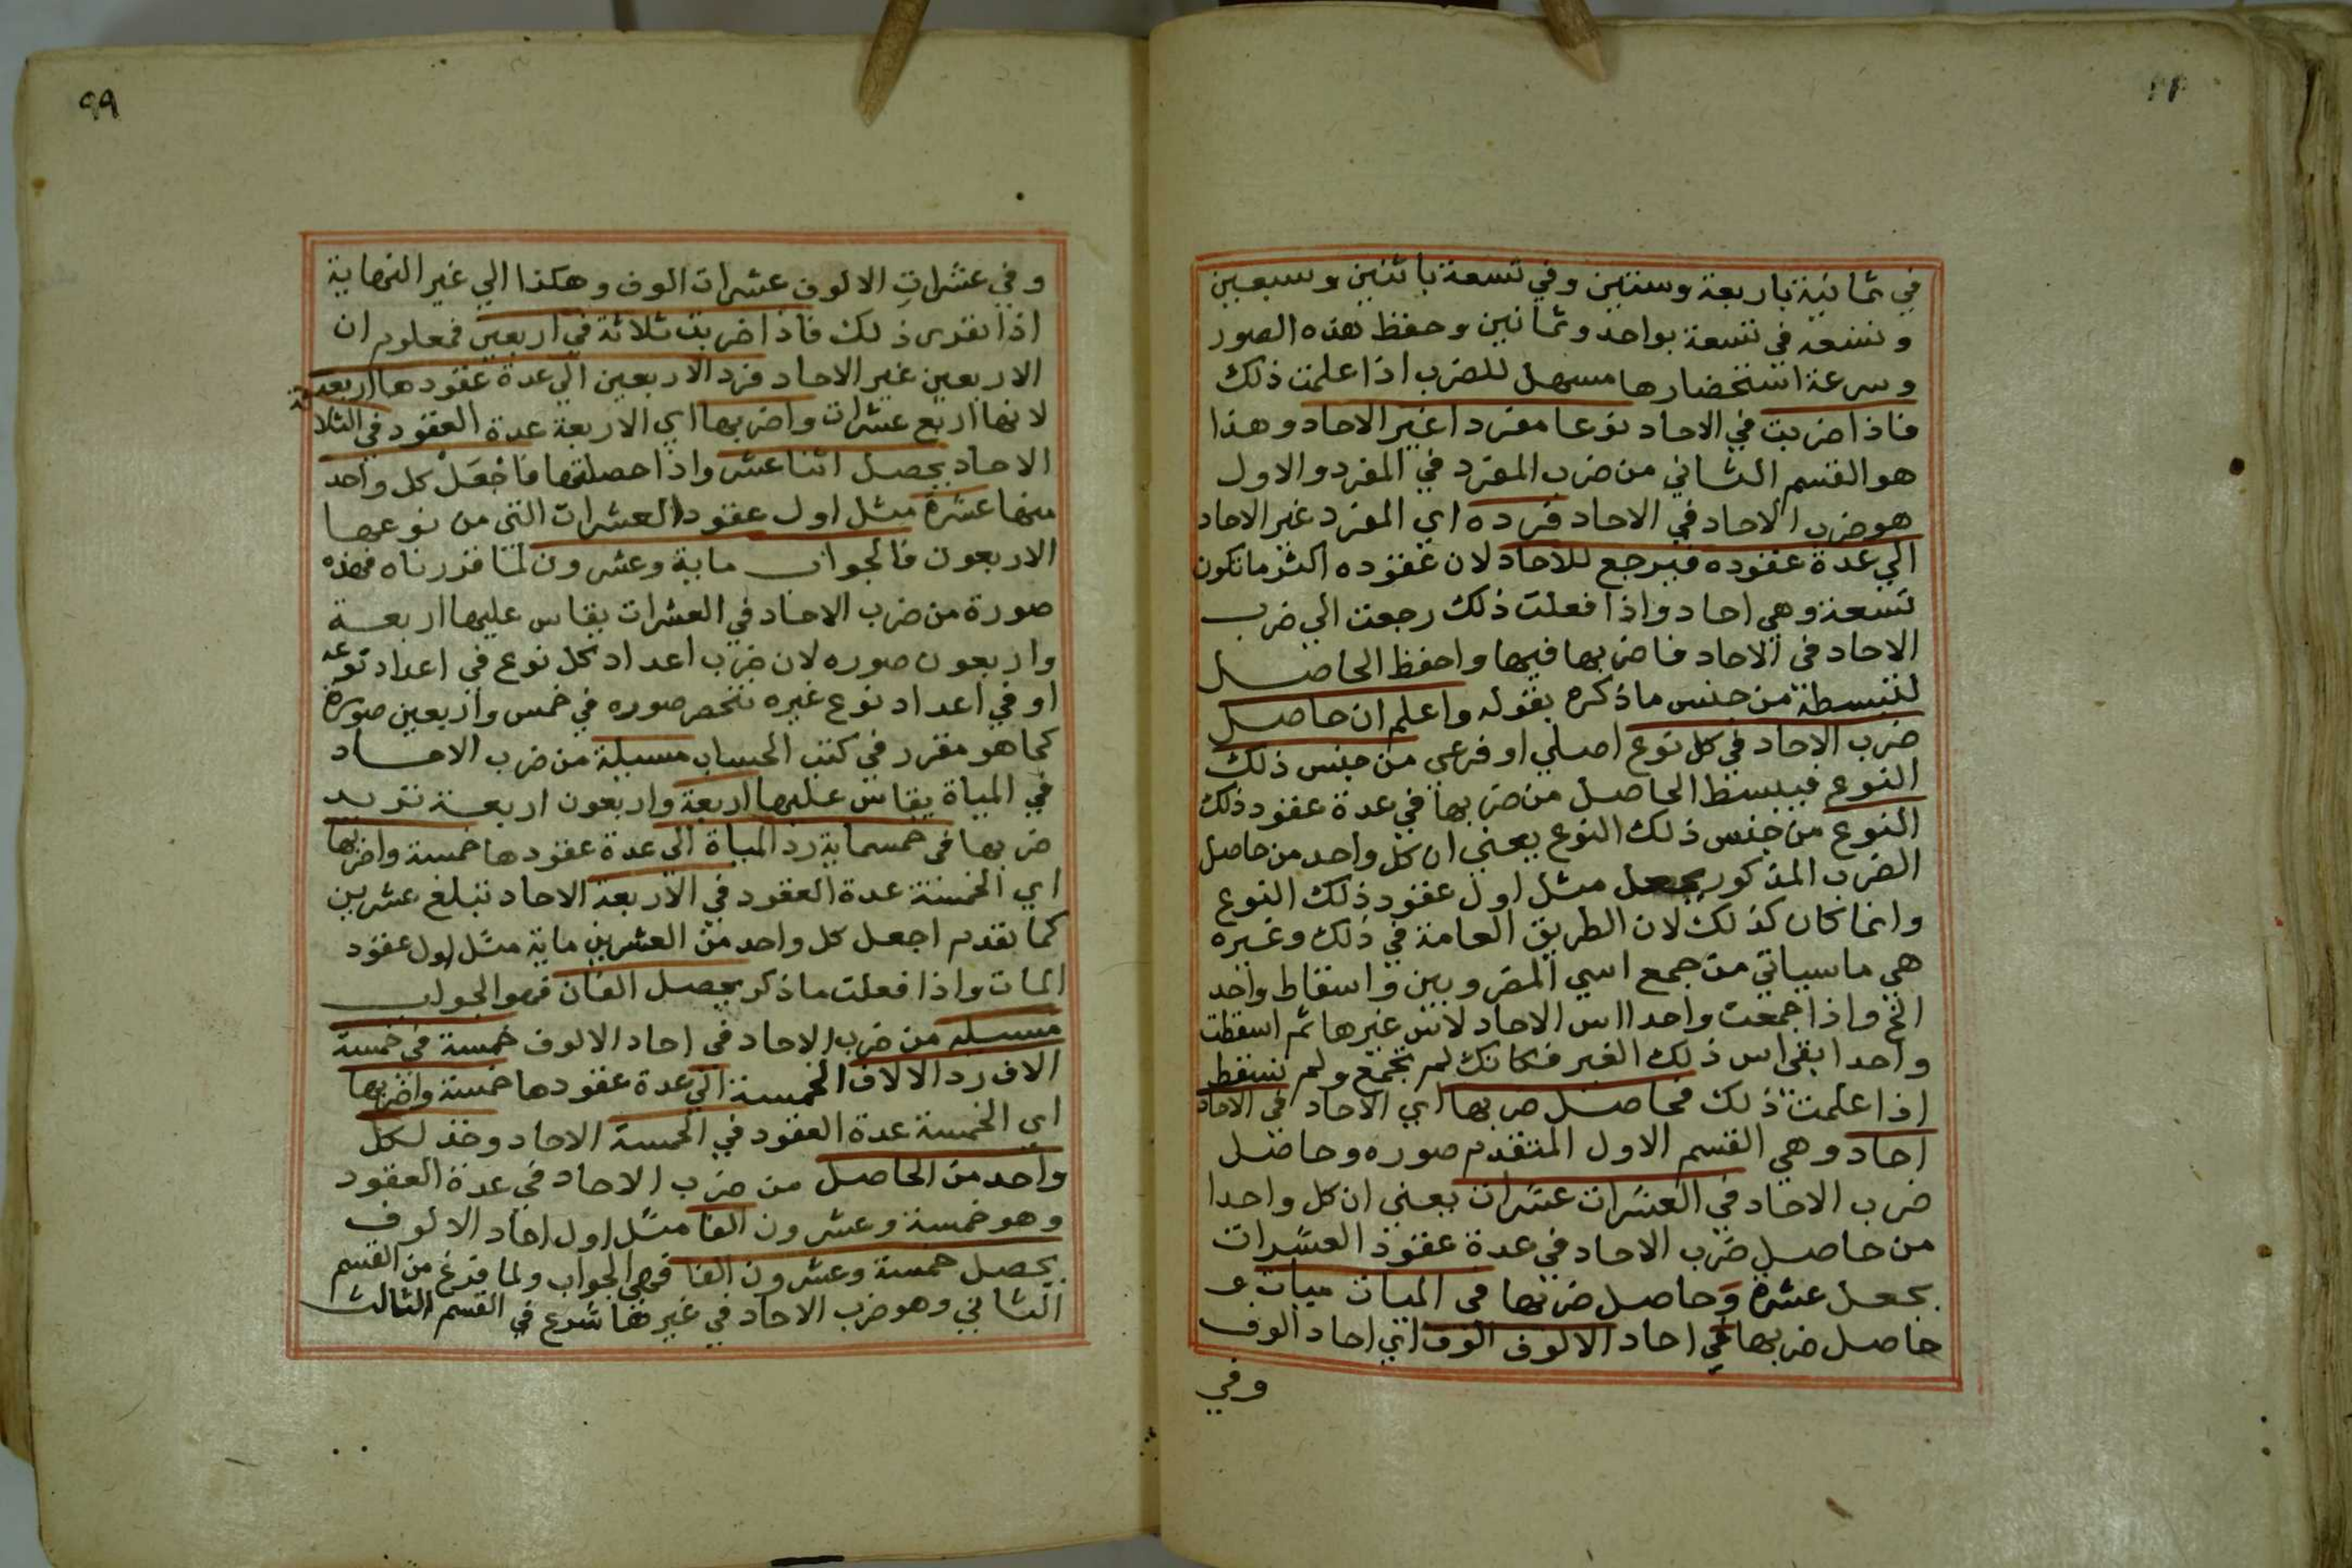 في ثمانية باربعة وستين وفي تسعة باثنين وسبعين
وتسعه في تسعة بواحد وثمانين وحفظ هذه الصور
وسرعة استحضارها مسهل للضرب اذا علمت ذلك
فاذا ضربت في الاحاد نوعا مفردا غير الاحاد وهذا
هو القسم الثاني من ضرب المفرد في المفرد والاول
هو ضرب الاحاد في الاحاد فرده اي المفرد غير الاحاد
الي عدة عقوده فيرجع للاحاد لان عقوده اكثر ما تكون
تسعة وهي احاد واذا فعلت ذلك رجعت الي ضرب
الاحاد في الاحاد فاضربها فيها واحفظ الحاصل
لتبسطه من جنس ما ذكره بقوله واعلم ان حاصل
ضرب الاحاد في كل نوع اصلي او فرعي من جنس ذلك
النوع فيبسط الحاصل من ضربها في عدة عقود ذلك
النوع من جنس ذلك النوع يعني ان كل واحد من حاصل
الضرب المذكور يجعل مثل اول عقود ذلك النوع
وانما كان كذلك لان الطريق العامة في ذلك وغيره
هي ما سياتي من جمع اسي المضروبين واسقاط واحد
الخ واذا جمعت واحدا اس الاحاد لاس غيرها ثم اسقطت
واحدا بقي اس ذلك الغير فكانك لم تجمع ولم تسقط
اذا علمت ذلك فحاصل ضربها اي الاحاد في الاحاد
احاد وهي القسم الاول المتقدم صوره وحاصل
ضرب الاحاد في العشرات عشرات يعني ان كل واحدا
من حاصل ضرب الاحاد في عدة عقود العشرات
يجعل عشرة وحاصل ضربها في الميات ميات و
حاصل ضربها في احاد الالوف الوف اي احاد الوف
وفي
٩٩
وفي عشرات الالوف عشرات الوف وهكذا الي غير النهاية
اذا تقرر ذلك فاذا ضربت ثلاثة في اربعين فمعلوم ان
الاربعين غير الاحاد فرد الاربعين الي عدة عقودها اربعة
لانها اربع عشرات واضربها اي الاربعة عدة العقود في الثلاثة
الاحاد يحصل اثنا عشر واذا حصلتها فاجعل كل واحد
منها عشرة مثل اول عقود العشرات التي من نوعها
الاربعون فالجواب ماية وعشرون لما قررناه فهذه
صورة من ضرب الاحاد في العشرات يقاس عليها اربعة
واربعون صوره لان ضرب اعداد كل نوع في اعداد نوعه
او في اعداد نوع غيره تنحصر صوره في خمس واربعين صورة
كما هو مقرر في كتب الحساب مسيلة من ضرب الاحاد
في المياة يقاس عليها اربعة واربعون اربعة تريد
ضربها في خمسماية رد المياة الي عدة عقودها خمسة واضربها
اي الخمسة عدة العقود في الاربعة الاحاد تبلغ عشرين
كما تقدم اجعل كل واحد من العشرين ماية مثل اول عقود
المات واذا فعلت ما ذكر يحصل الفان فهو الجواب
مسيله من ضرب الاحاد في احاد الالوف خمسة في خمسة
الاف رد الالاف الخمسة الي عدة عقودها خمسة واضربها
اي الخمسة عدة العقود في الخمسة الاحاد وخذ لكل
واحد من الحاصل من ضرب الاحاد في عدة العقود
وهو خمسة وعشرون الفا مثل اول احاد الالوف
يحصل خمسة وعشرون الفا فهي الجواب ولما فرغ من القسم
الثاني وهو ضرب الاحاد في غيرها شرع في القسم الثالث